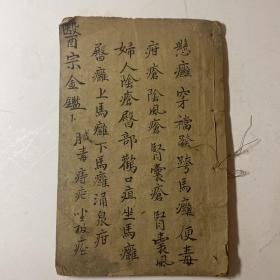 懸癰穿襠發跨馬癰便毒
疳瘡陰虱瘡腎囊瘡腎囊風
婦人陰瘡臀部鸛口疽坐馬癰
臀癰上馬癰下馬癰涌泉疽
臓毒痔疮坐板疮
醫宗金鑑卜